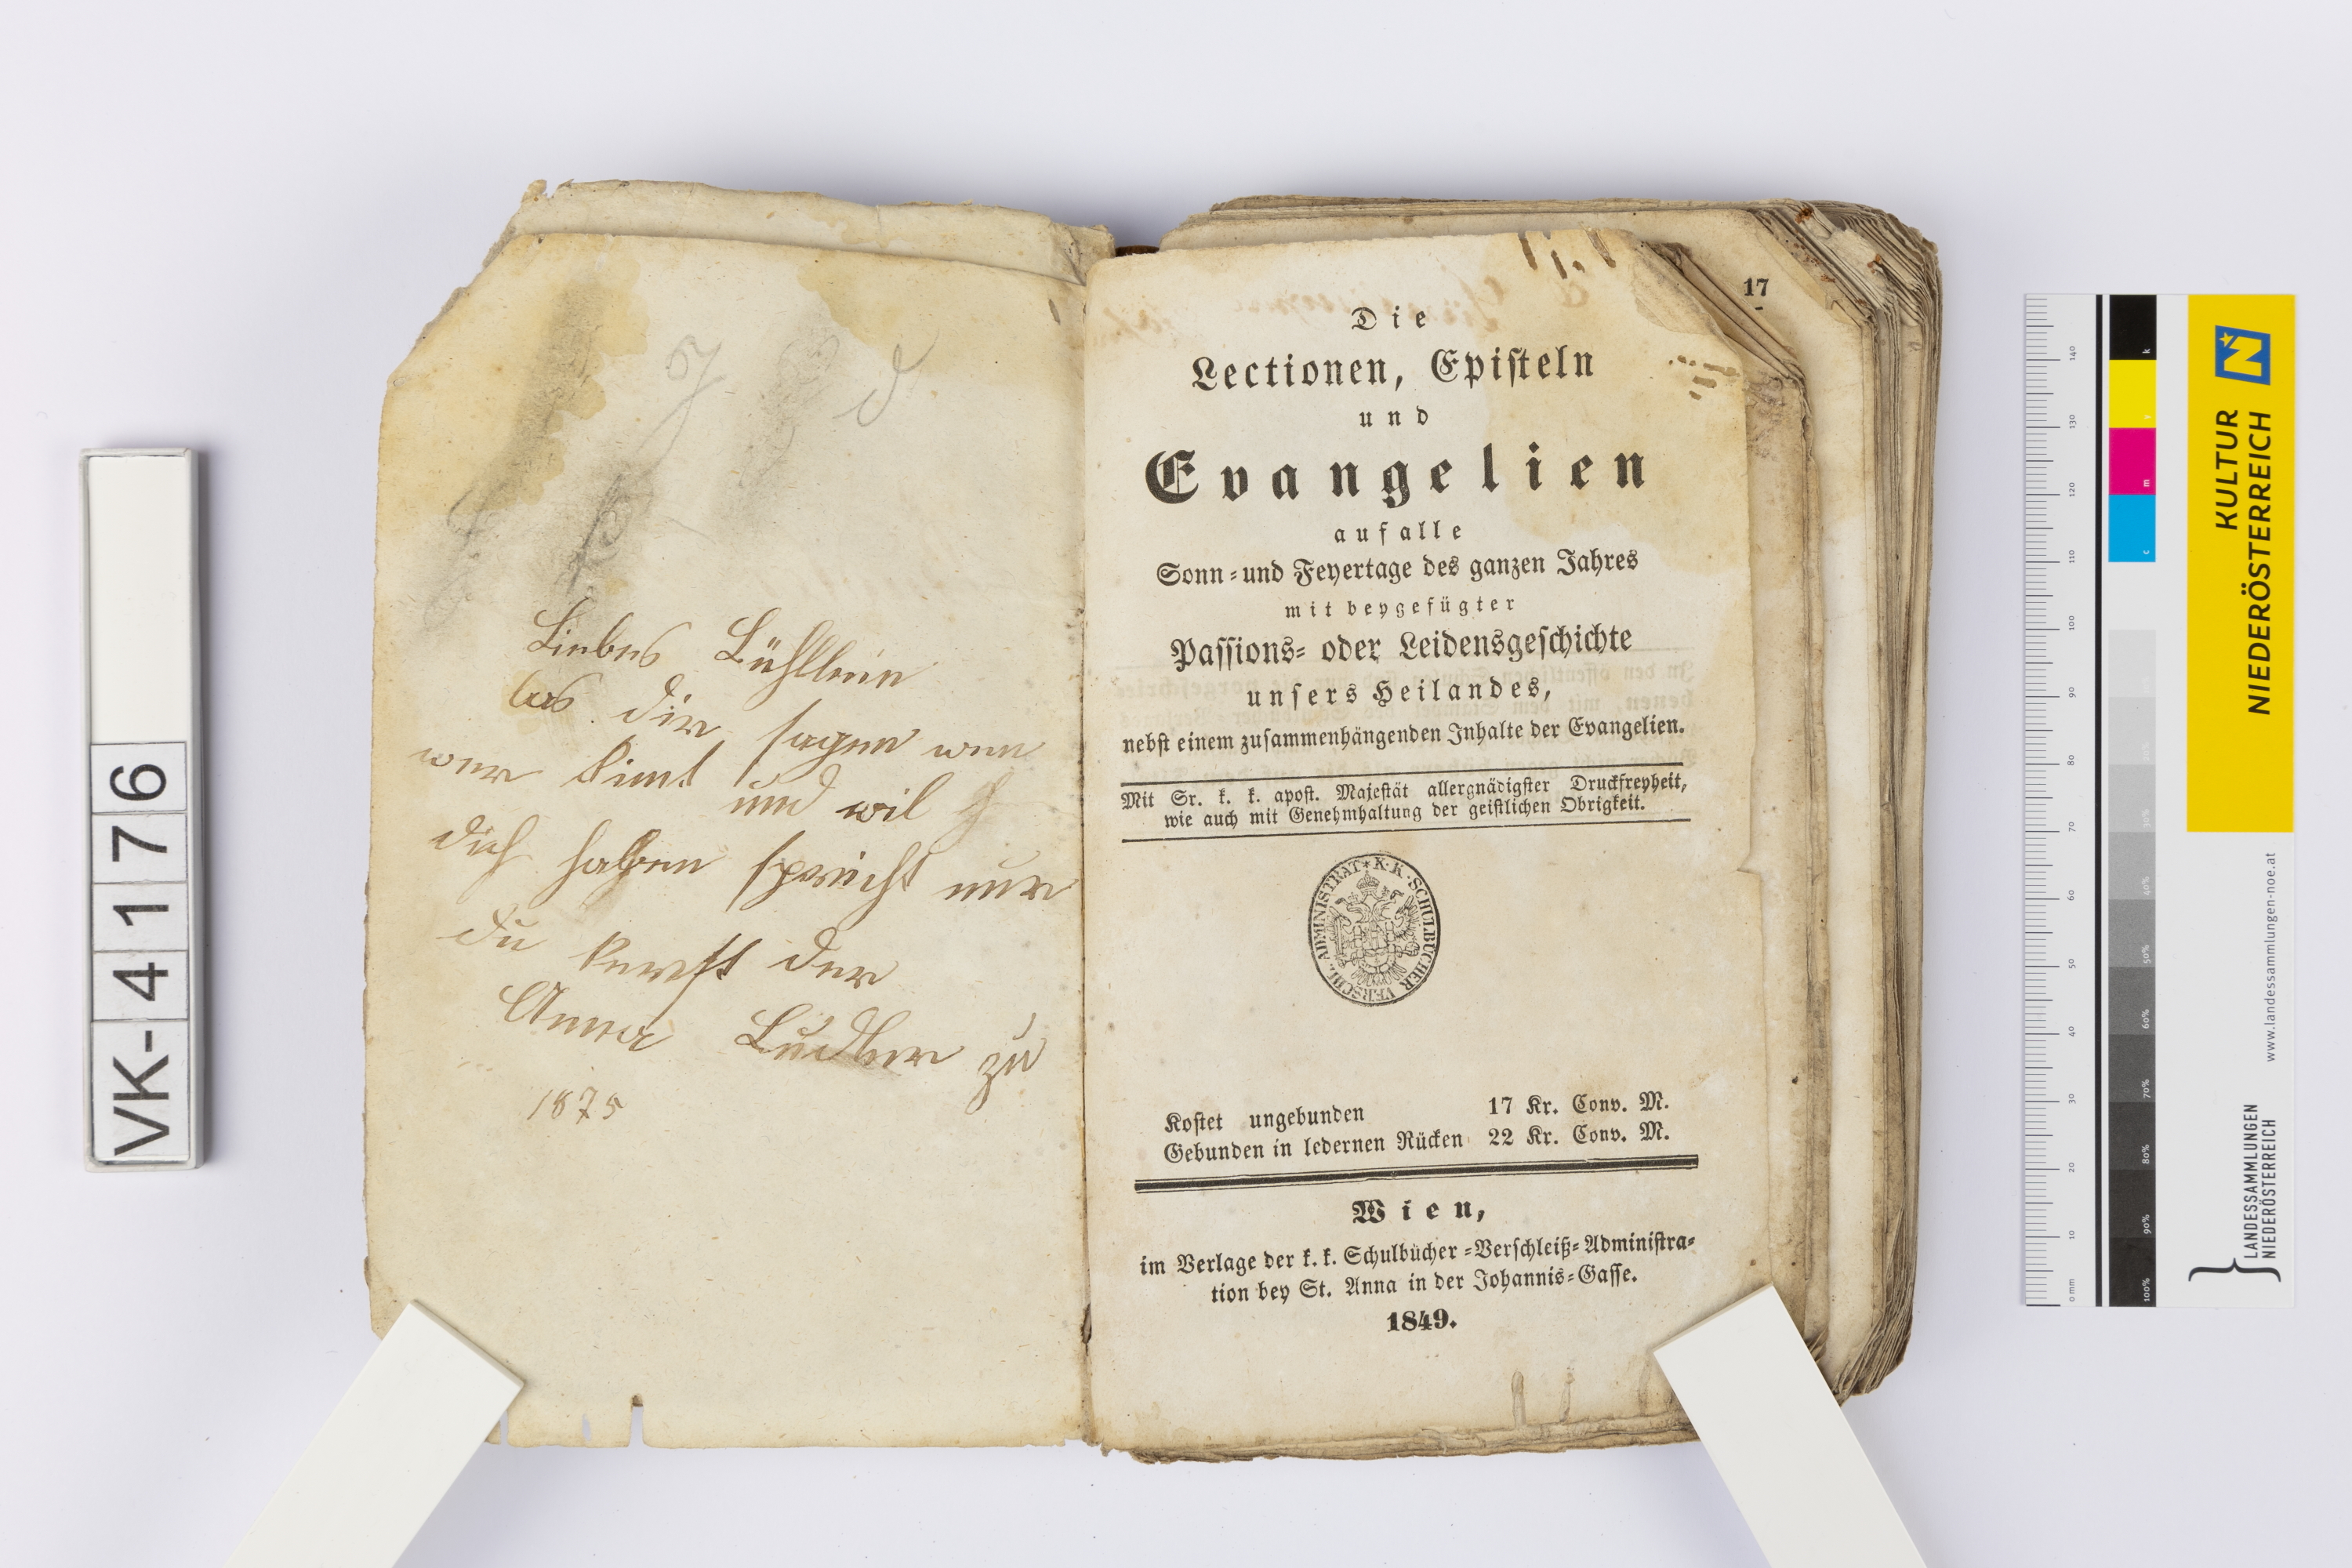 VK-4176
Liebes Bühllein
las dir sagen wen
wer kimt und wil
dich haben sprich nur
du kerest der
Anna Ludler zu
1875
17
Die
Lectionen, Episteln
und
Evangelien
auf alle
Sonn- und Feyertage des ganzen Jahres
mit beygefügter
Passions- oder Leidensgeschichte
unsers Heilandes,
nebst einem zusammenhängenden Inhalte der Evangelien.
Mit Sr. k. k. apost. Majestät allergnädigster Druckfreyheit,
wie auch mit Genehmhaltung der geistlichen Obrigkeit.
K. K. SCHULBÜCHER VERSCHL. ADMINISTRAT
Kostet ungebunden 17 Kr. Conv. M.
Gebunden in ledernen Rücken 22 Kr. Conv. M.
Wien,
im Verlage der k. k. Schulbücher-Verschleiß-Administra-
tion bey St. Anna in der Johannis-Gasse.
1849.
KULTUR
NIEDERÖSTERREICH
www.landessammlungen-noe.at
LANDESSAMMLUNGEN
NIEDERÖSTERREICH
0 mm 10 20 30 40 50 60 70 80 90 100 110 120 130 140
k
y
m
c
10% 20% 30% 40% 50% 60% 70% 80% 90% 100%